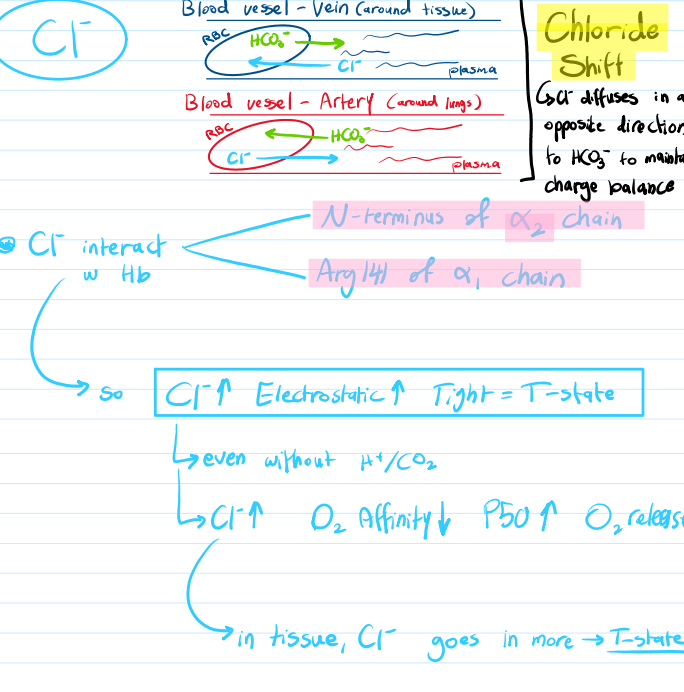 Cl⁻
Blood vessel - Vein (around tissue)
RBC
HCO₃⁻
Cl⁻
plasma
Blood vessel - Artery (around lungs)
RBC
HCO₃⁻
Cl⁻
plasma
Chloride
Shift
↳ Cl⁻ diffuses in a
opposite direction
to HCO₃⁻ to mainta
charge balance
Cl⁻ interact
w Hb
N-terminus of α₂ chain
Arg 141 of α₁ chain
so Cl⁻↑ Electrostatic↑ Tight = T-state
↳ even without H⁺/CO₂
↳ Cl⁻↑ O₂ Affinity↓ P50↑ O₂ releas
in tissue, Cl⁻ goes in more → T-state